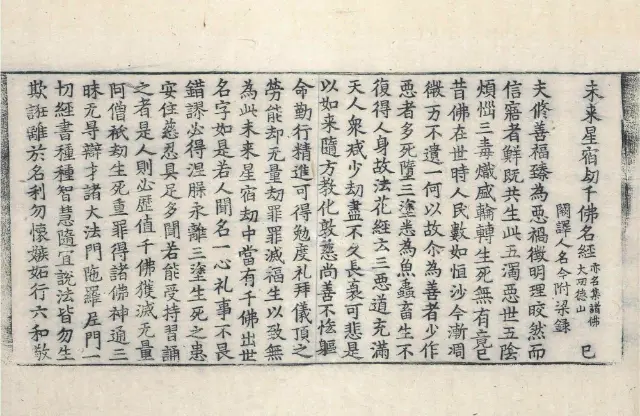 未来星宿刧千佛名經 亦名集諸佛大功德山 巳
闕譯人名今附梁錄
夫脩善福臻為惡禍徵明理皎然而
信寤者鮮既共生此五濁惡世五陰
煩惱三毒熾盛輪轉生死無有竟已
昔佛在世時人民數如恒沙今漸凋
微万不遺一何以故尒為善者少作
惡者多死墮三塗悉為魚蟲畜生不
復得人身故法花經云三惡道充滿
天人衆減少刧盡不久長衰可悲是
以如来隨方教化敦慈尚善不恡軀
命勤行精進可得勉度礼拜儀頂之
勞能却无量刧罪罪滅福生以致無
為此未来星宿刧中當有千佛出世
名字如是若人聞名一心礼事不畏
錯謬必得涅槃永離三塗生死之患
安住慈忍具足多聞若能受持習誦
之者是人則必歷值千佛獲滅无量
阿僧祇刧生死重罪得諸佛神通三
昧无导辯才諸大法門陁羅尼門一
切經書種種智慧隨宜說法皆勿生
欺誑離於名利勿懷嫉妬行六和敬